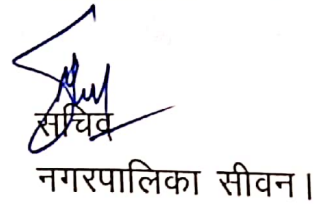 सचिव
नगरपालिका सीवन।